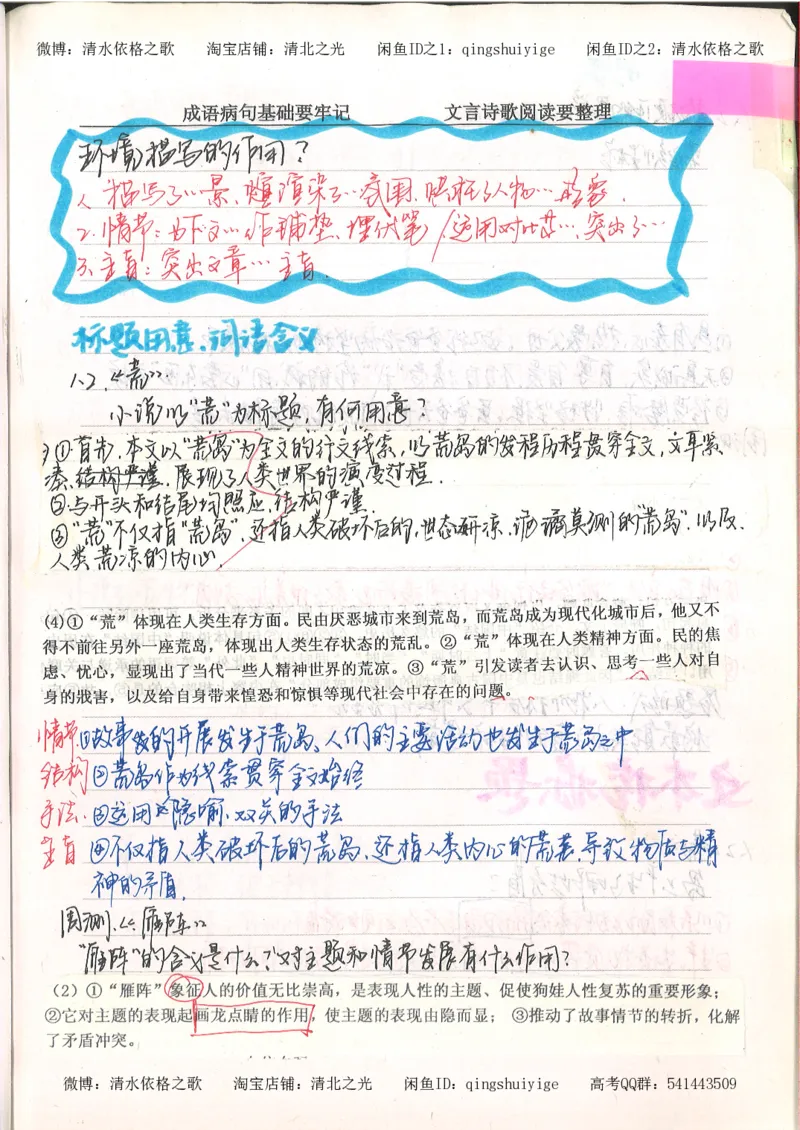 微博：清水依格之歌 淘宝店铺：清北之光 闲鱼ID之1：qingshuiyige 闲鱼ID之2：清水依格之歌
成语病句基础要牢记 文言诗歌阅读要整理
环境描写的作用？
1. 描写了…景、渲染了…氛围、烘托了人物…形象.
2. 情节：为下文…作铺垫、埋伏笔/运用对比…，突出了…
3. 主旨：突出文章…主旨.
标题用意、词语含义
1.2.《荒》
小说以"荒"为标题，有何用意？
①首先，本文以"荒岛"为全文的行文线索，以荒岛的发程历程贯穿全文，文章紧
凑，结构严谨，展现了人类世界的演变过程.
②与开头和结尾均照应，结构严谨.
③"荒"不仅指"荒岛"，还指人类破坏后的，世态炎凉，诡谲莫测的"荒岛"，以及，
人类荒凉的内心.
(4)①“荒”体现在人类生存方面。民由厌恶城市来到荒岛，而荒岛成为现代化城市后，他又不
得不前往另外一座荒岛，体现出人类生存状态的荒乱。②“荒”体现在人类精神方面。民的焦
虑、忧心，显现出了当代一些人精神世界的荒凉。③“荒”引发读者去认识、思考一些人对自
身的戕害，以及给自身带来惶恐和惊惧等现代社会中存在的问题。
情节 ①故事的开展发生于荒岛、人们的主要活动也发生于荒岛之中
结构 ②荒岛作为线索贯穿全文始终
手法. ③运用隐喻、双关的手法
主旨 ④不仅指人类破坏后的荒岛，还指人类内心的荒芜，导致物质与精
神的矛盾.
周测.《雁阵》
"雁阵"的含义是什么？对主题和情节发展有什么作用？
（2）①“雁阵”象征人的价值无比崇高，是表现人性的主题、促使狗娃人性复苏的重要形象；
②它对主题的表现起画龙点睛的作用，使主题的表现由隐而显； ③推动了故事情节的转折，化解
了矛盾冲突。
微博：清水依格之歌 淘宝店铺：清北之光 闲鱼ID：qingshuiyige 高考QQ群：541443509